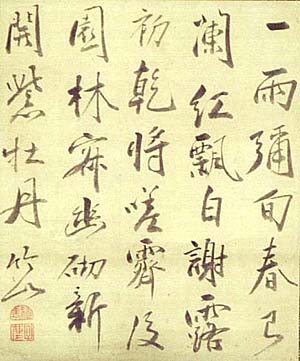 一雨彌旬春已
闌紅飄白謝露
初乾將嗟霽後
園林寂幽砌新
開紫牡丹 竹山